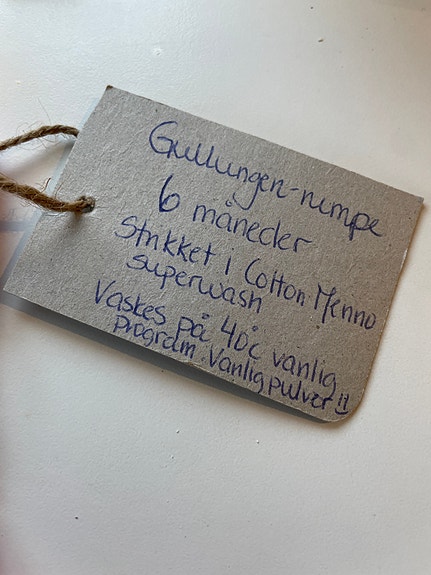 Gullungen-rumpe
6 måneder
Strikket i Cotton Merino
superwash
Vaskes på 40°c vanlig
program. Vanlig pulver !!